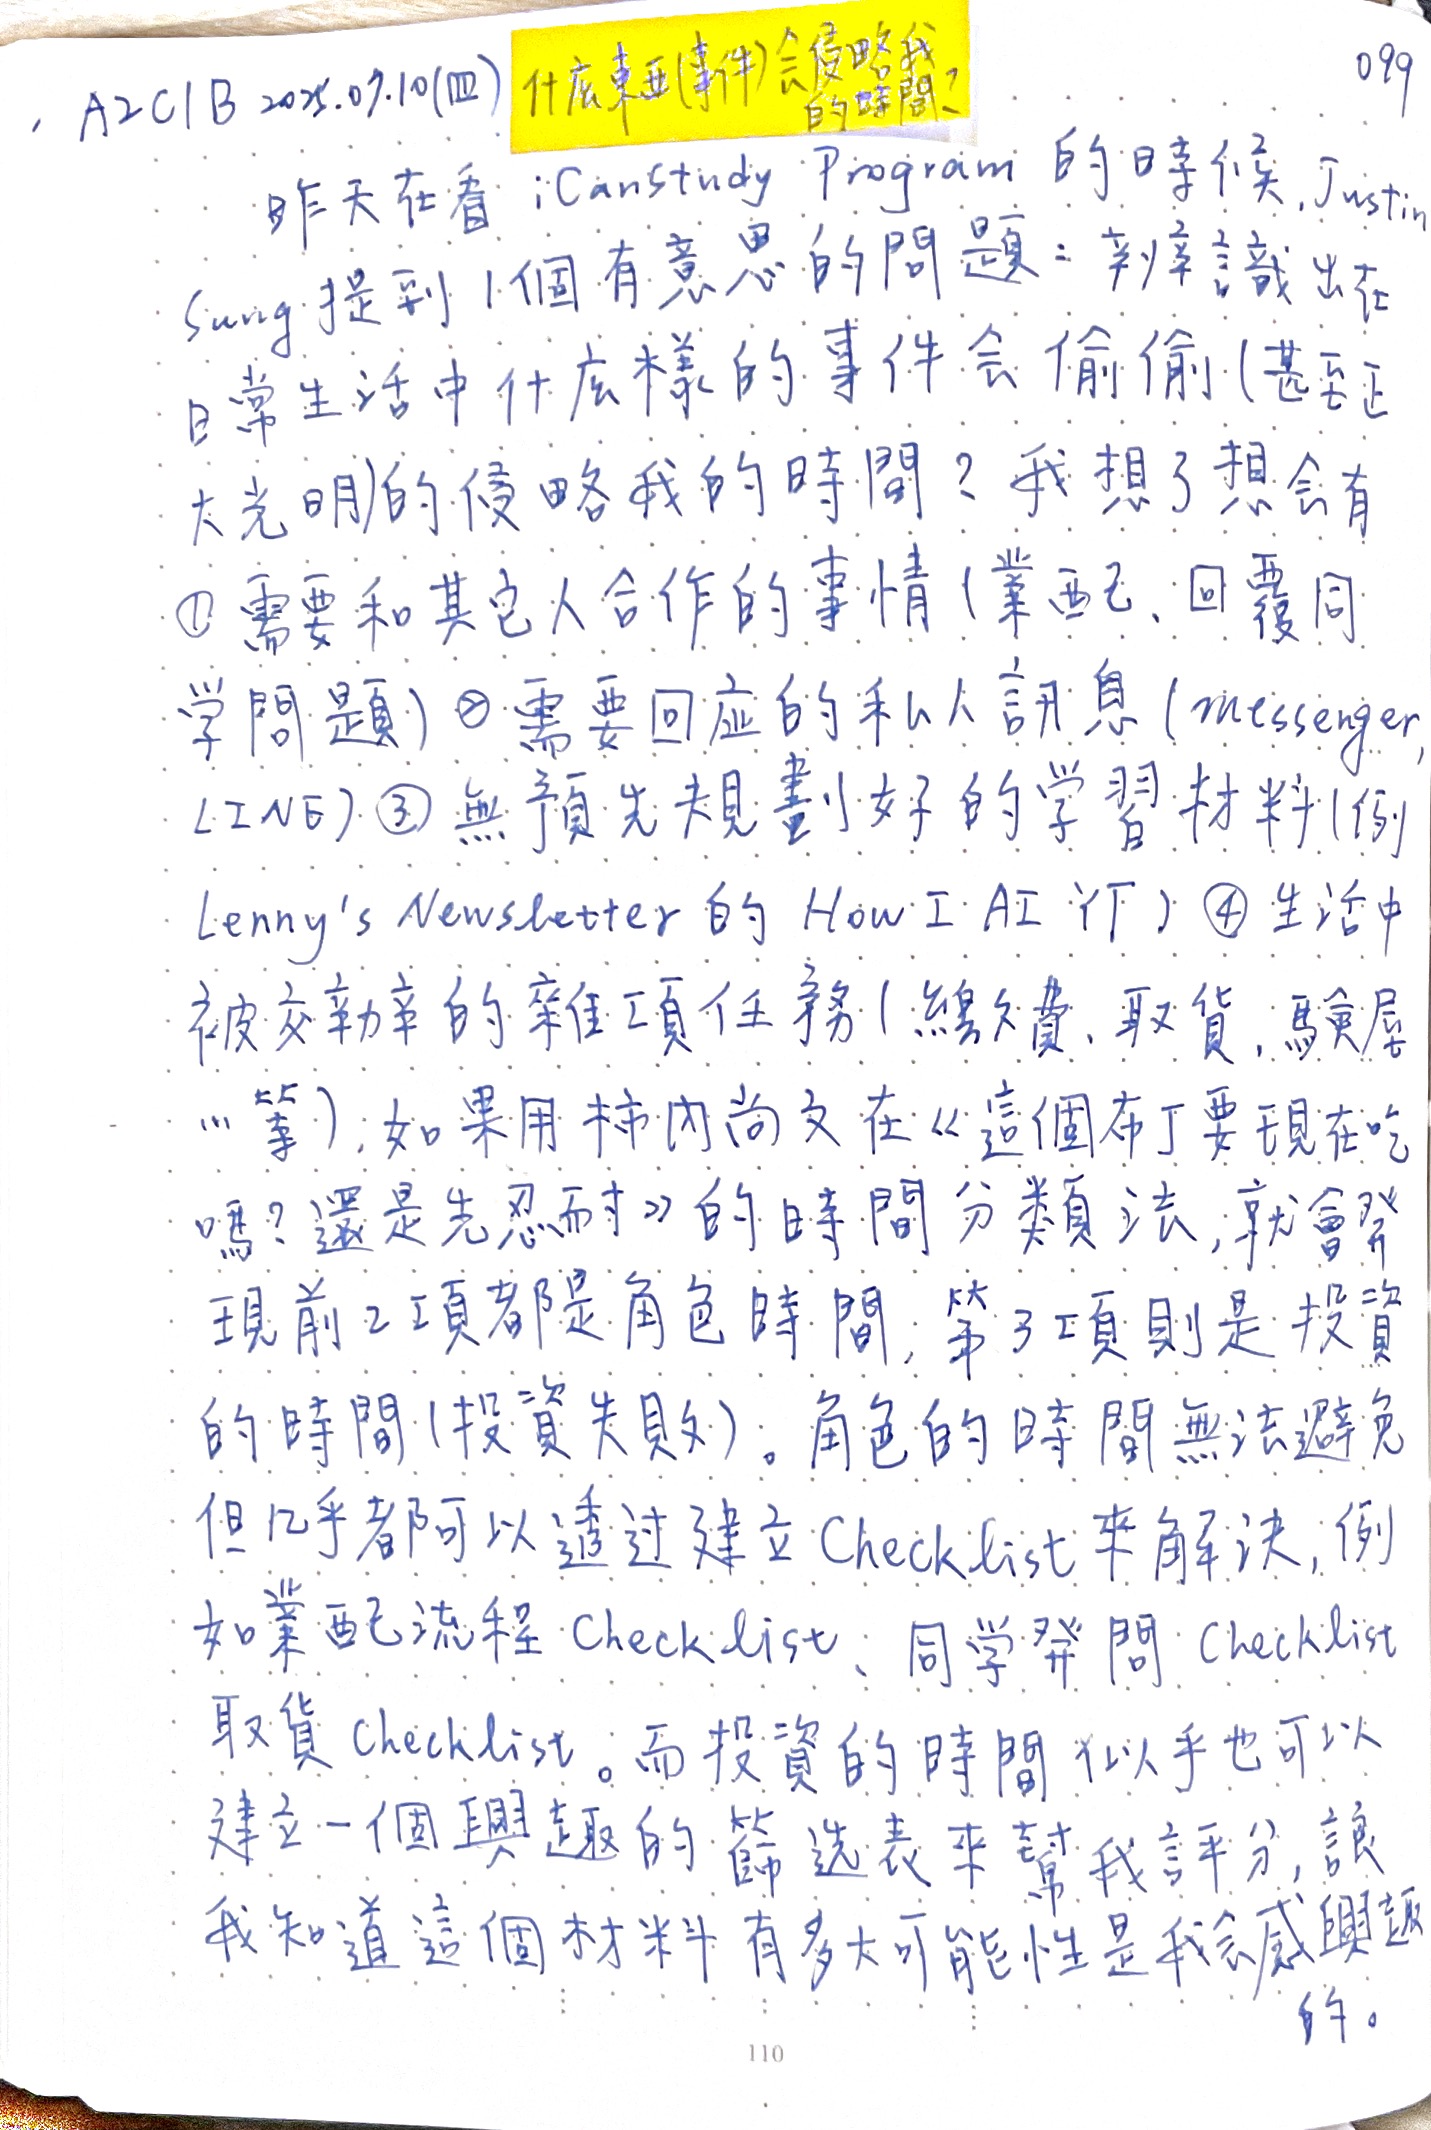 099
A2C1B 2025.07.10(四) 什庅東西(事件)会侵略我
的時間?
昨天在看 iCanStudy Program 的時候, Justin
Sung 提到1個有意思的問題：辨識出在
日常生活中什庅樣的事件会偷偷(甚至正
大光明)的侵略我的時間? 我想了想会有
① 需要和其它人合作的事情(業配、回覆同
学問題) ② 需要回应的私人訊息(messenger,
LINE) ③ 無預先規劃好的学習材料(例
Lenny's Newsletter 的 How I AI 下) ④ 生活中
被交辦的雜項任務(繳費、取貨, 驗屋
…等), 如果用柿內尚文在《這個布丁要現在吃
嗎? 還是先忍耐》的時間分類法, 就會発
現前2項都是角色時間, 第3項則是投資
的時間(投資失敗)。角色的時間無法避免
但几乎都可以透过建立Checklist來解決, 例
如業配流程 Checklist、同学発問 Checklist
取貨 Checklist。而投資的時間似乎也可以
建立一個興趣的篩选表來幫我評分, 讓
我知道這個材料有多大可能性是我会感興趣
的。
110